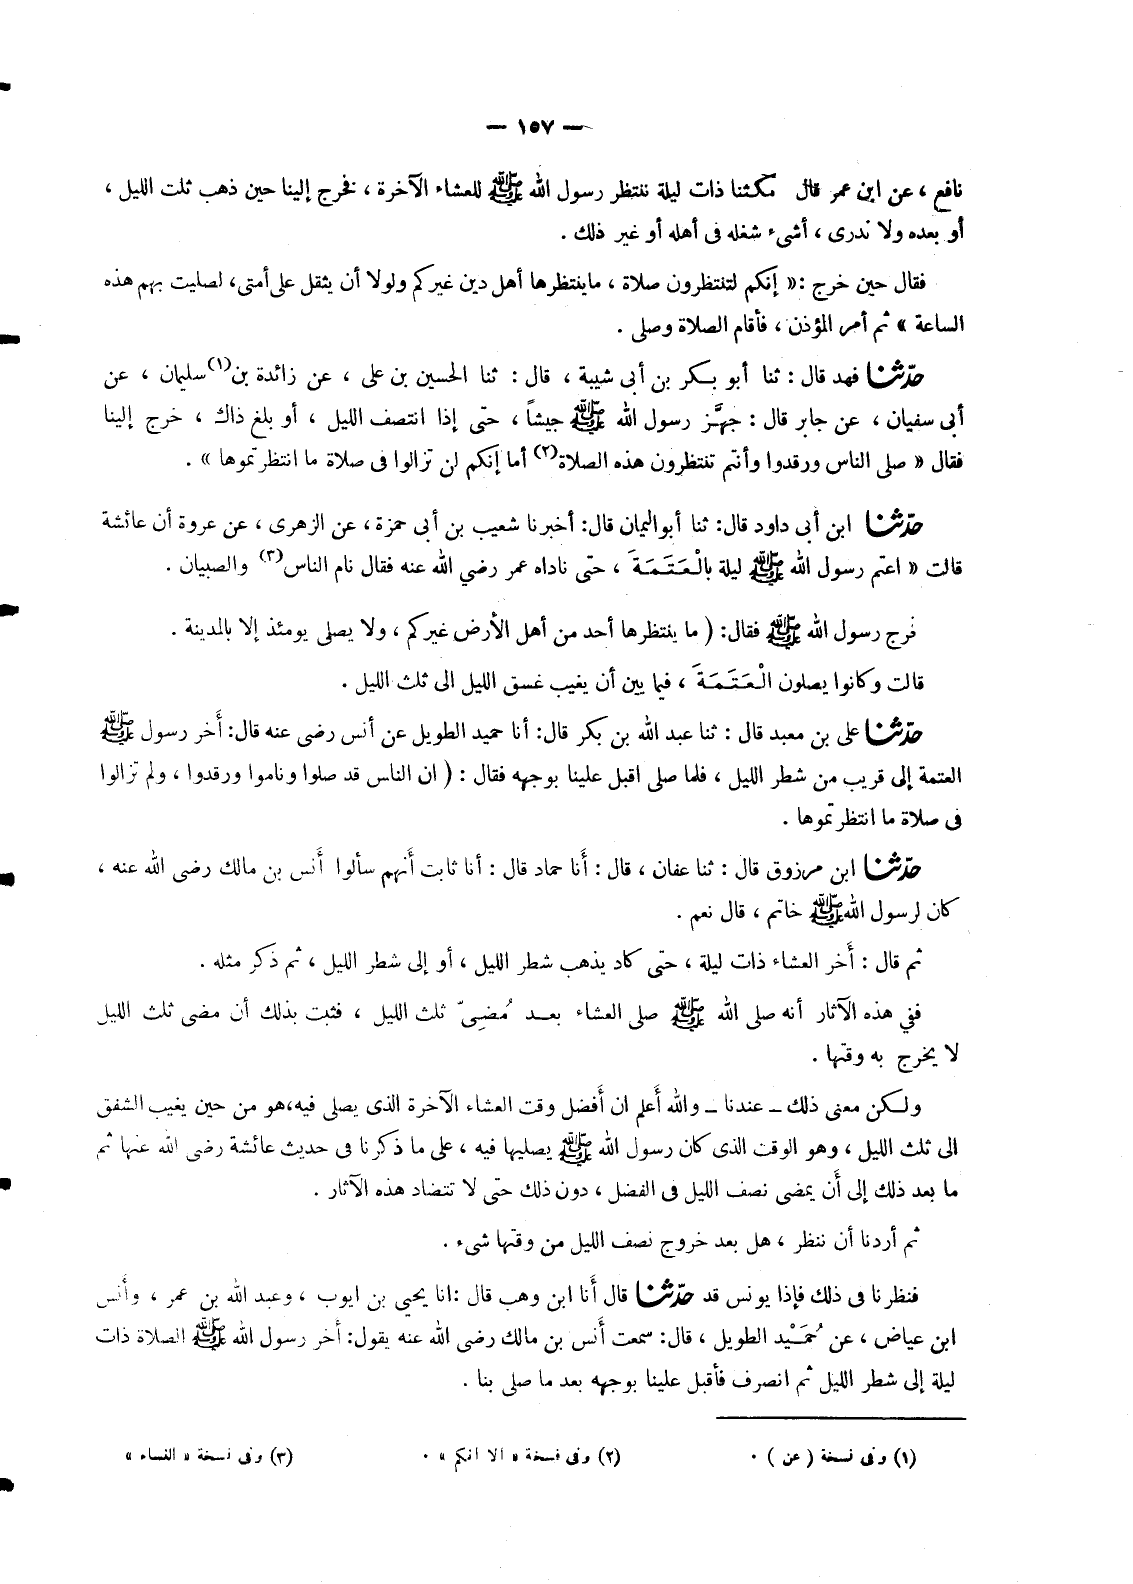 — ١٥٧ —
نافع ، عن ابن عمر قال مكثنا ذات ليلة ننتظر رسول الله ﷺ للعشاء الآخرة ، فخرج إلينا حين ذهب ثلث الليل ،
أو بعده ولا ندرى ، أشىء شغله فى أهله أو غير ذلك .
فقال حين خرج : « إنكم لتنتظرون صلاة ، ماينتظرها أهل دين غيركم ولولا أن يثقل على أمتى، لصليت بهم هذه
الساعة » ثم أمر المؤذن ، فأقام الصلاة وصلى .
حدّثنا فهد قال : ثنا أبو بكر بن أبى شيبة ، قال : ثنا الحسين بن على ، عن زائدة بن(١) سليمان ، عن
أبى سفيان ، عن جابر قال : جهَّز رسول الله ﷺ جيشاً ، حتى إذا انتصف الليل ، أو بلغ ذاك ، خرج إلينا
فقال « صلى الناس ورقدوا وأنتم تنتظرون هذه الصلاة(٢) أما إنكم لن تزالوا فى صلاة ما انتظرتموها » .
حدّثنا ابن أبى داود قال: ثنا أبواليمان قال: أخبرنا شعيب بن أبى حمزة ، عن الزهرى ، عن عروة أن عائشة
قالت « اعتم رسول الله ﷺ ليلة بالْعَتَمَةَ ، حتى ناداه عمر رضي الله عنه فقال نام الناس(٣) والصبيان .
فرج رسول الله ﷺ فقال: ( ما ينتظرها أحد من أهل الأرض غيركم ، ولا يصلى يومئذ إلا بالمدينة .
قالت وكانوا يصلون الْعَتَمَةَ ، فيما بين أن يغيب غسق الليل الى ثلث الليل .
حدّثنا على بن معبد قال : ثنا عبد الله بن بكر قال: أنا حميد الطويل عن أنس رضى عنه قال: أَخر رسول ﷺ
العتمة إلى قريب من شطر الليل ، فلما صلى اقبل علينا بوجهه فقال : ( ان الناس قد صلوا وناموا ورقدوا ، ولم تزالوا
فى صلاة ما انتظرتموها .
حدّثنا ابن مرزوق قال : ثنا عفان ، قال : أَنا حماد قال : أنا ثابت أَنهم سألوا أَنس بن مالك رضى الله عنه ،
كان لرسول الله ﷺ خاتم ، قال نعم .
ثم قال : أَخر العشاء ذات ليلة ، حتى كاد يذهب شطر الليل ، أو إلى شطر الليل ، ثم ذكر مثله .
ففي هذه الآثار أنه صلى الله ﷺ صلى العشاء بعد مُضِىّ ثلث الليل ، فثبت بذلك أن مضى ثلث الليل
لا يخرج به وقتها .
ولكن معنى ذلك ـ عندنا ـ والله أَعلم ان أَفضل وقت العشاء الآخرة الذى يصلى فيه،هو من حين يغيب الشفق
الى ثلث الليل ، وهو الوقت الذى كان رسول الله ﷺ يصليها فيه ، على ما ذكرنا فى حديث عائشة رضى الله عنها ثم
ما بعد ذلك إلى أَن يمضى نصف الليل فى الفضل ، دون ذلك حتى لا تتضاد هذه الآثار .
ثم أردنا أن ننظر ، هل بعد خروج نصف الليل من وقتها شىء .
فنظرنا فى ذلك فإذا يونس قد حدّثنا قال أَنا ابن وهب قال :انا يحيي بن ايوب ، وعبد الله بن عمر ، وأَنس
ابن عياض ، عن حُمَيْد الطويل ، قال: سمعت أَنس بن مالك رضى الله عنه يقول: أخر رسول الله ﷺ الصلاة ذات
ليلة إلى شطر الليل ثم انصرف فأقبل علينا بوجهه بعد ما صلى بنا .
(١) وفى نسخة ( عن ) .
(٢) وفى نسخة « الا انكم » .
(٣) وفى نسخة « النساء »